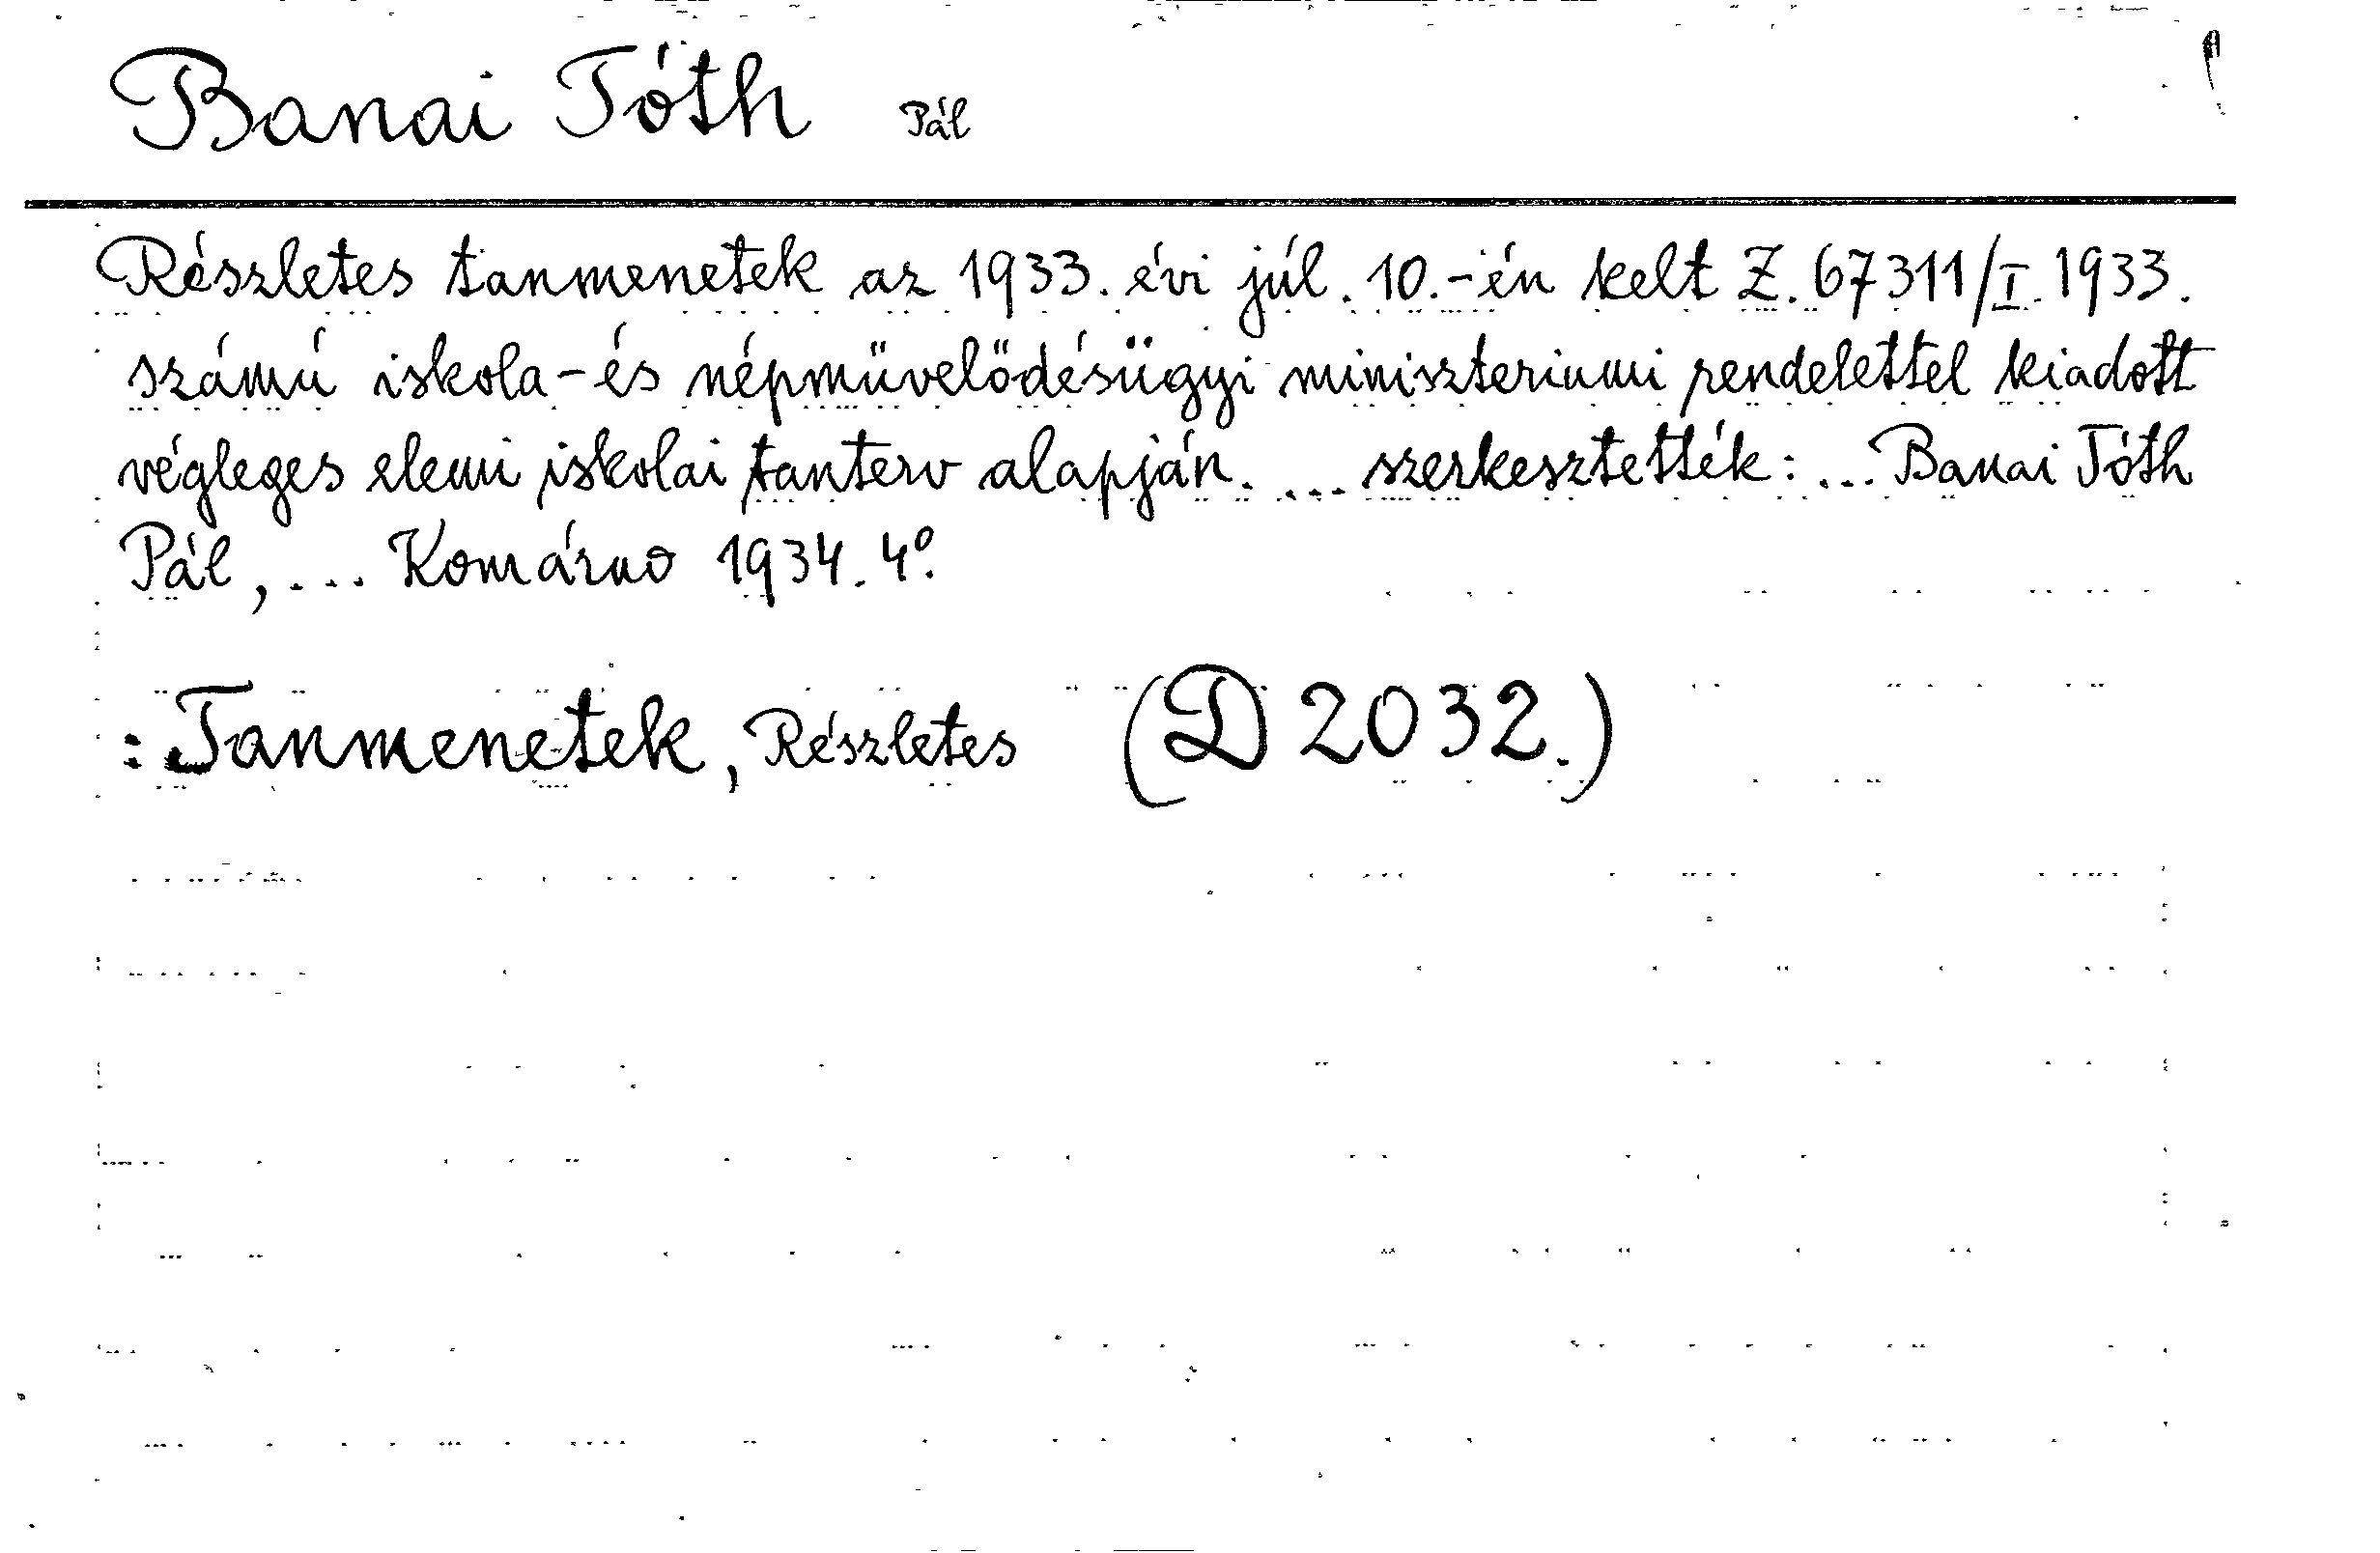 Banai Tóth Pál
Részletes tanmenetek az 1933. évi júl. 10.-én kelt Z. 67311/I. 1933.
számú iskola-és népművelődésügyi miniszteriumi rendelettel kiadott
végleges elemi iskolai tanterv alapján. ... szerkesztették: ... Banai Tóth
Pál, ... Komárno 1934. 4°.
: Tanmenetek, Részletes (D 2032.)